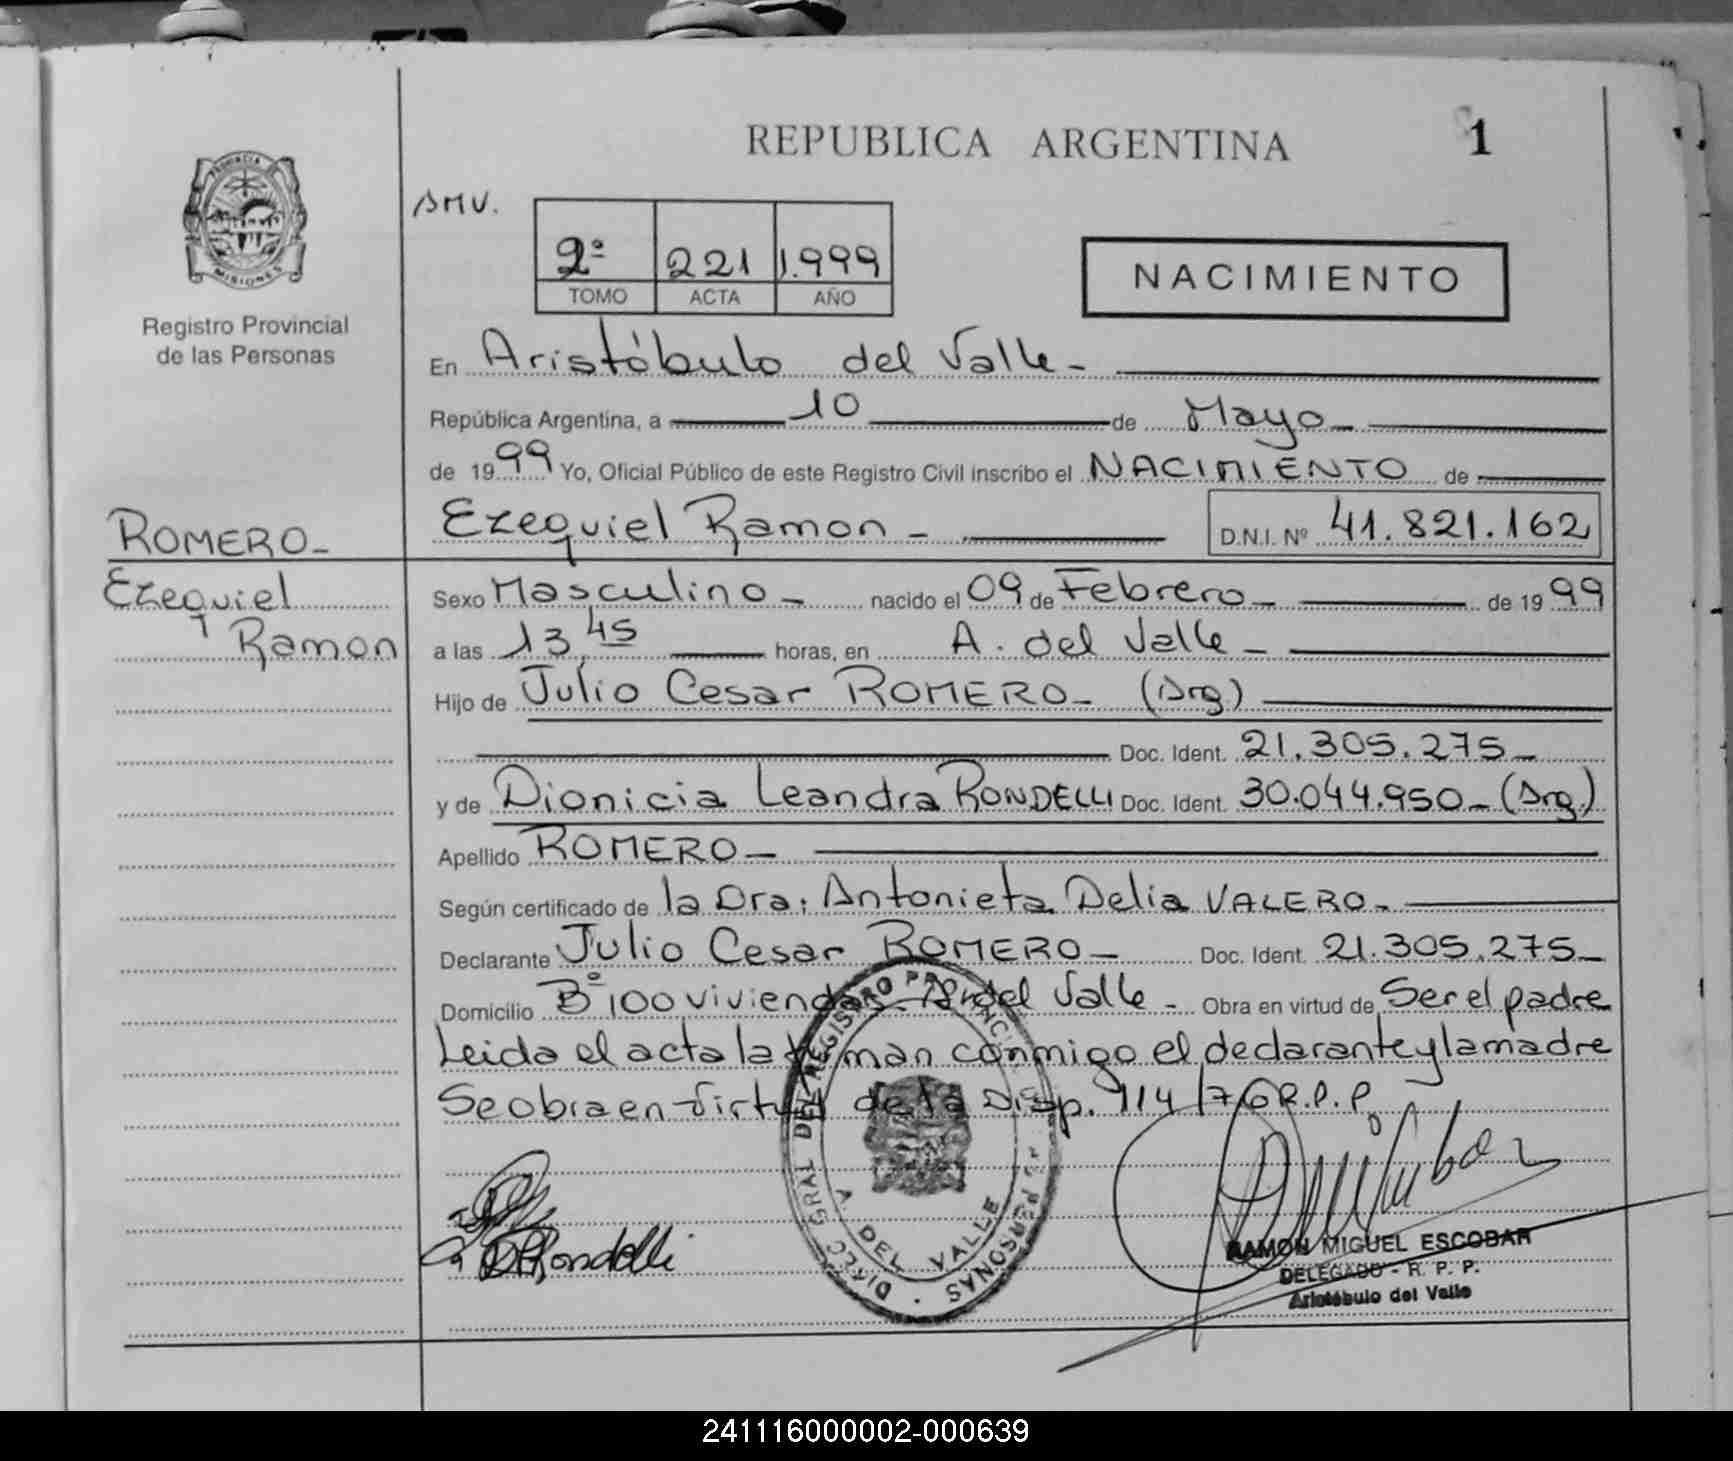 REPUBLICA ARGENTINA
1
PROVINCIA
MISIONES
Registro Provincial
de las Personas
2º 221 1.999
TOMO ACTA AÑO
NACIMIENTO
En Aristóbulo del Valle-
República Argentina, a 10 de Mayo-
de 1999 Yo, Oficial Público de este Registro Civil inscribo el NACIMIENTO de
ROMERO-
Ezequiel Ramon - D.N.I. Nº 41.821.162
Ezequiel
Ramon
Sexo Masculino- nacido el 09 de Febrero- de 1999
a las 13,45 horas, en A. del Valle-
Hijo de Julio Cesar ROMERO- (Arg.)
Doc. Ident. 21.305.275-
y de Dionicia Leandra RONDELLI Doc. Ident. 30.044.950- (Arg.)
Apellido ROMERO-
Según certificado de la Dra. Antonieta Delia VALERO-
Declarante Julio Cesar ROMERO- Doc. Ident. 21.305.275-
Domicilio Bº 100 viviendas- A. del Valle- Obra en virtud de Ser el padre
Leida el acta la firman conmigo el declarante y la madre
Se obra en virtud de la Disp. 114/76 R.P.P.
DIREC. GRAL DEL REGISTRO PROVINCIAL PERSONAS
A. DEL VALLE
Rondelli
RAMON MIGUEL ESCOBAR
DELEGADO - R. P. P.
Aristóbulo del Valle
241116000002-000639